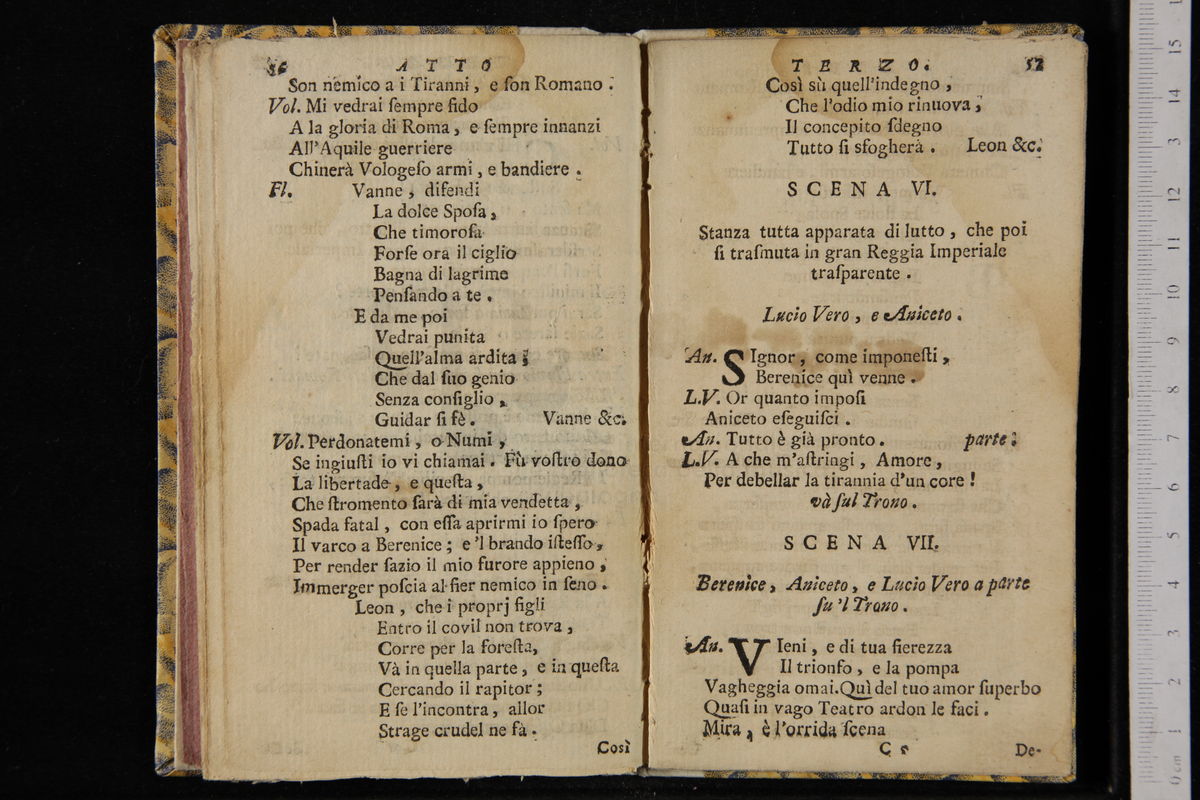 56 ATTO
Son nemico a i Tiranni, e ſon Romano.
Vol. Mi vedrai ſempre fido
A la gloria di Roma, e ſempre innanzi
All'Aquile guerriere
Chinerà Vologeſo armi, e bandiere.
Fl. Vanne, difendi
La dolce Spoſa,
Che timoroſa
Forſe ora il ciglio
Bagna di lagrime
Penſando a te.
E da me poi
Vedrai punita
Quell'alma ardita;
Che dal ſuo genio
Senza conſiglio,
Guidar ſi fè. Vanne &c.
Vol. Perdonatemi, o Numi,
Se ingiuſti io vi chiamai. Fù voſtro dono
La libertade, e queſta,
Che ſtromento ſarà di mia vendetta,
Spada fatal, con eſſa aprirmi io ſpero
Il varco a Berenice; e 'l brando iſteſſo,
Per render ſazio il mio furore appieno,
Immerger poſcia al fier nemico in ſeno.
Leon, che i proprj figli
Entro il covil non trova,
Corre per la foreſta,
Và in quella parte, e in queſta
Cercando il rapitor;
E ſe l'incontra, allor
Strage crudel ne fà.
Così
TERZO. 57
Così sù quell'indegno,
Che l'odio mio rinuova,
Il concepito ſdegno
Tutto ſi sfogherà. Leon &c.
SCENA VI.
Stanza tutta apparata di lutto, che poi
ſi traſmuta in gran Reggia Imperiale
traſparente.
Lucio Vero, e Aniceto.
An. SIgnor, come imponeſti,
Berenice quì venne.
L.V. Or quanto impoſi
Aniceto eſeguiſci.
An. Tutto è già pronto. parte.
L.V. A che m'aſtringi, Amore,
Per debellar la tirannia d'un core!
và ſul Trono.
SCENA VII.
Berenice, Aniceto, e Lucio Vero a parte
ſu 'l Trono.
An. VIeni, e di tua fierezza
Il trionfo, e la pompa
Vagheggia omai. Quì del tuo amor ſuperbo
Quaſi in vago Teatro ardon le faci.
Mira, è l'orrida ſcena
C 5 De-
0 cm 1 2 3 4 5 6 7 8 9 10 11 12 13 14 15